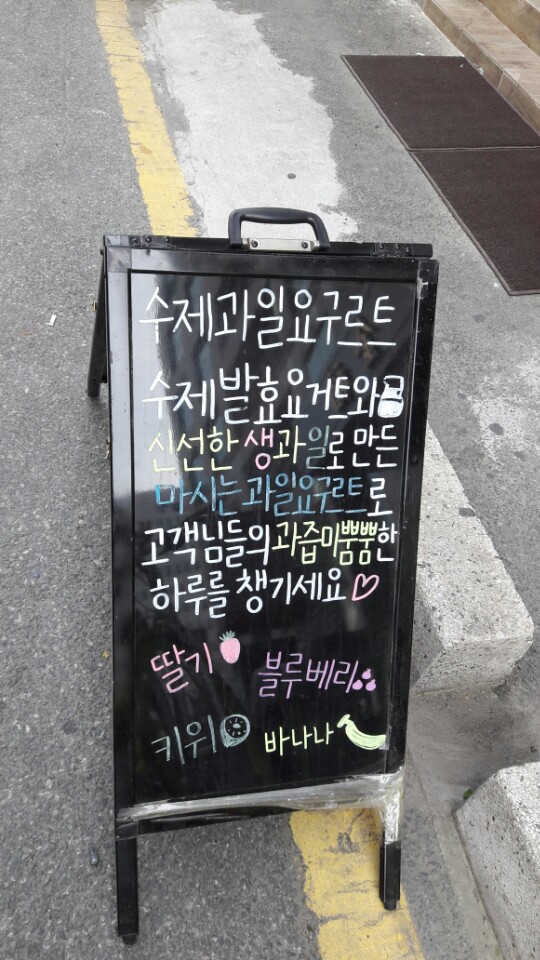 수제과일요구르트
수제발효요거트와
신선한 생과일로 만든
마시는 과일요구르트로
고객님들의 과즙미뿜뿜한
하루를 챙기세요♡
딸기
블루베리
키위
바나나